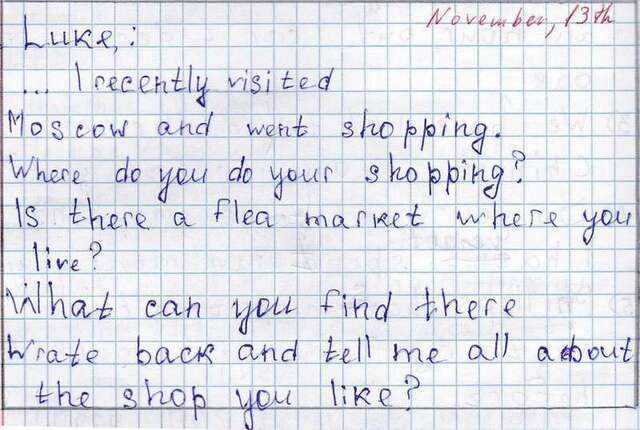 November, 13th
Luke, :
... I recently visited
Moscow and went shopping.
Where do you do your shopping?
Is there a flea market where you
live?
What can you find there
Wrate back and tell me all about
the shop you like?